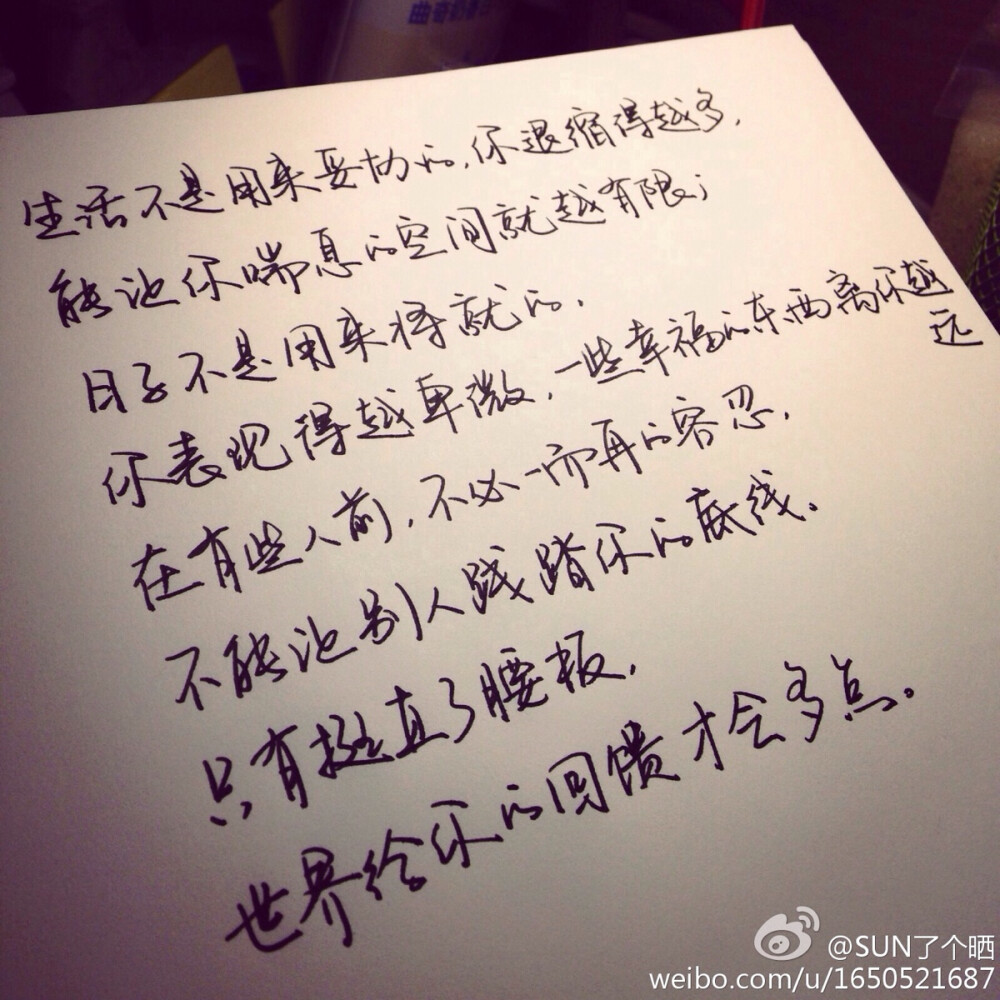 生活不是用来妥协的,你退缩得越多,
能让你喘息的空间就越有限;
日子不是用来将就的,
你表现得越卑微,一些幸福的东西离你越
远
在有些人前,不必一而再的容忍,
不能让别人践踏你的底线。
只有挺直了腰板,
世界给你的回馈才会多点。
@SUN了个晒
weibo.com/u/1650521687